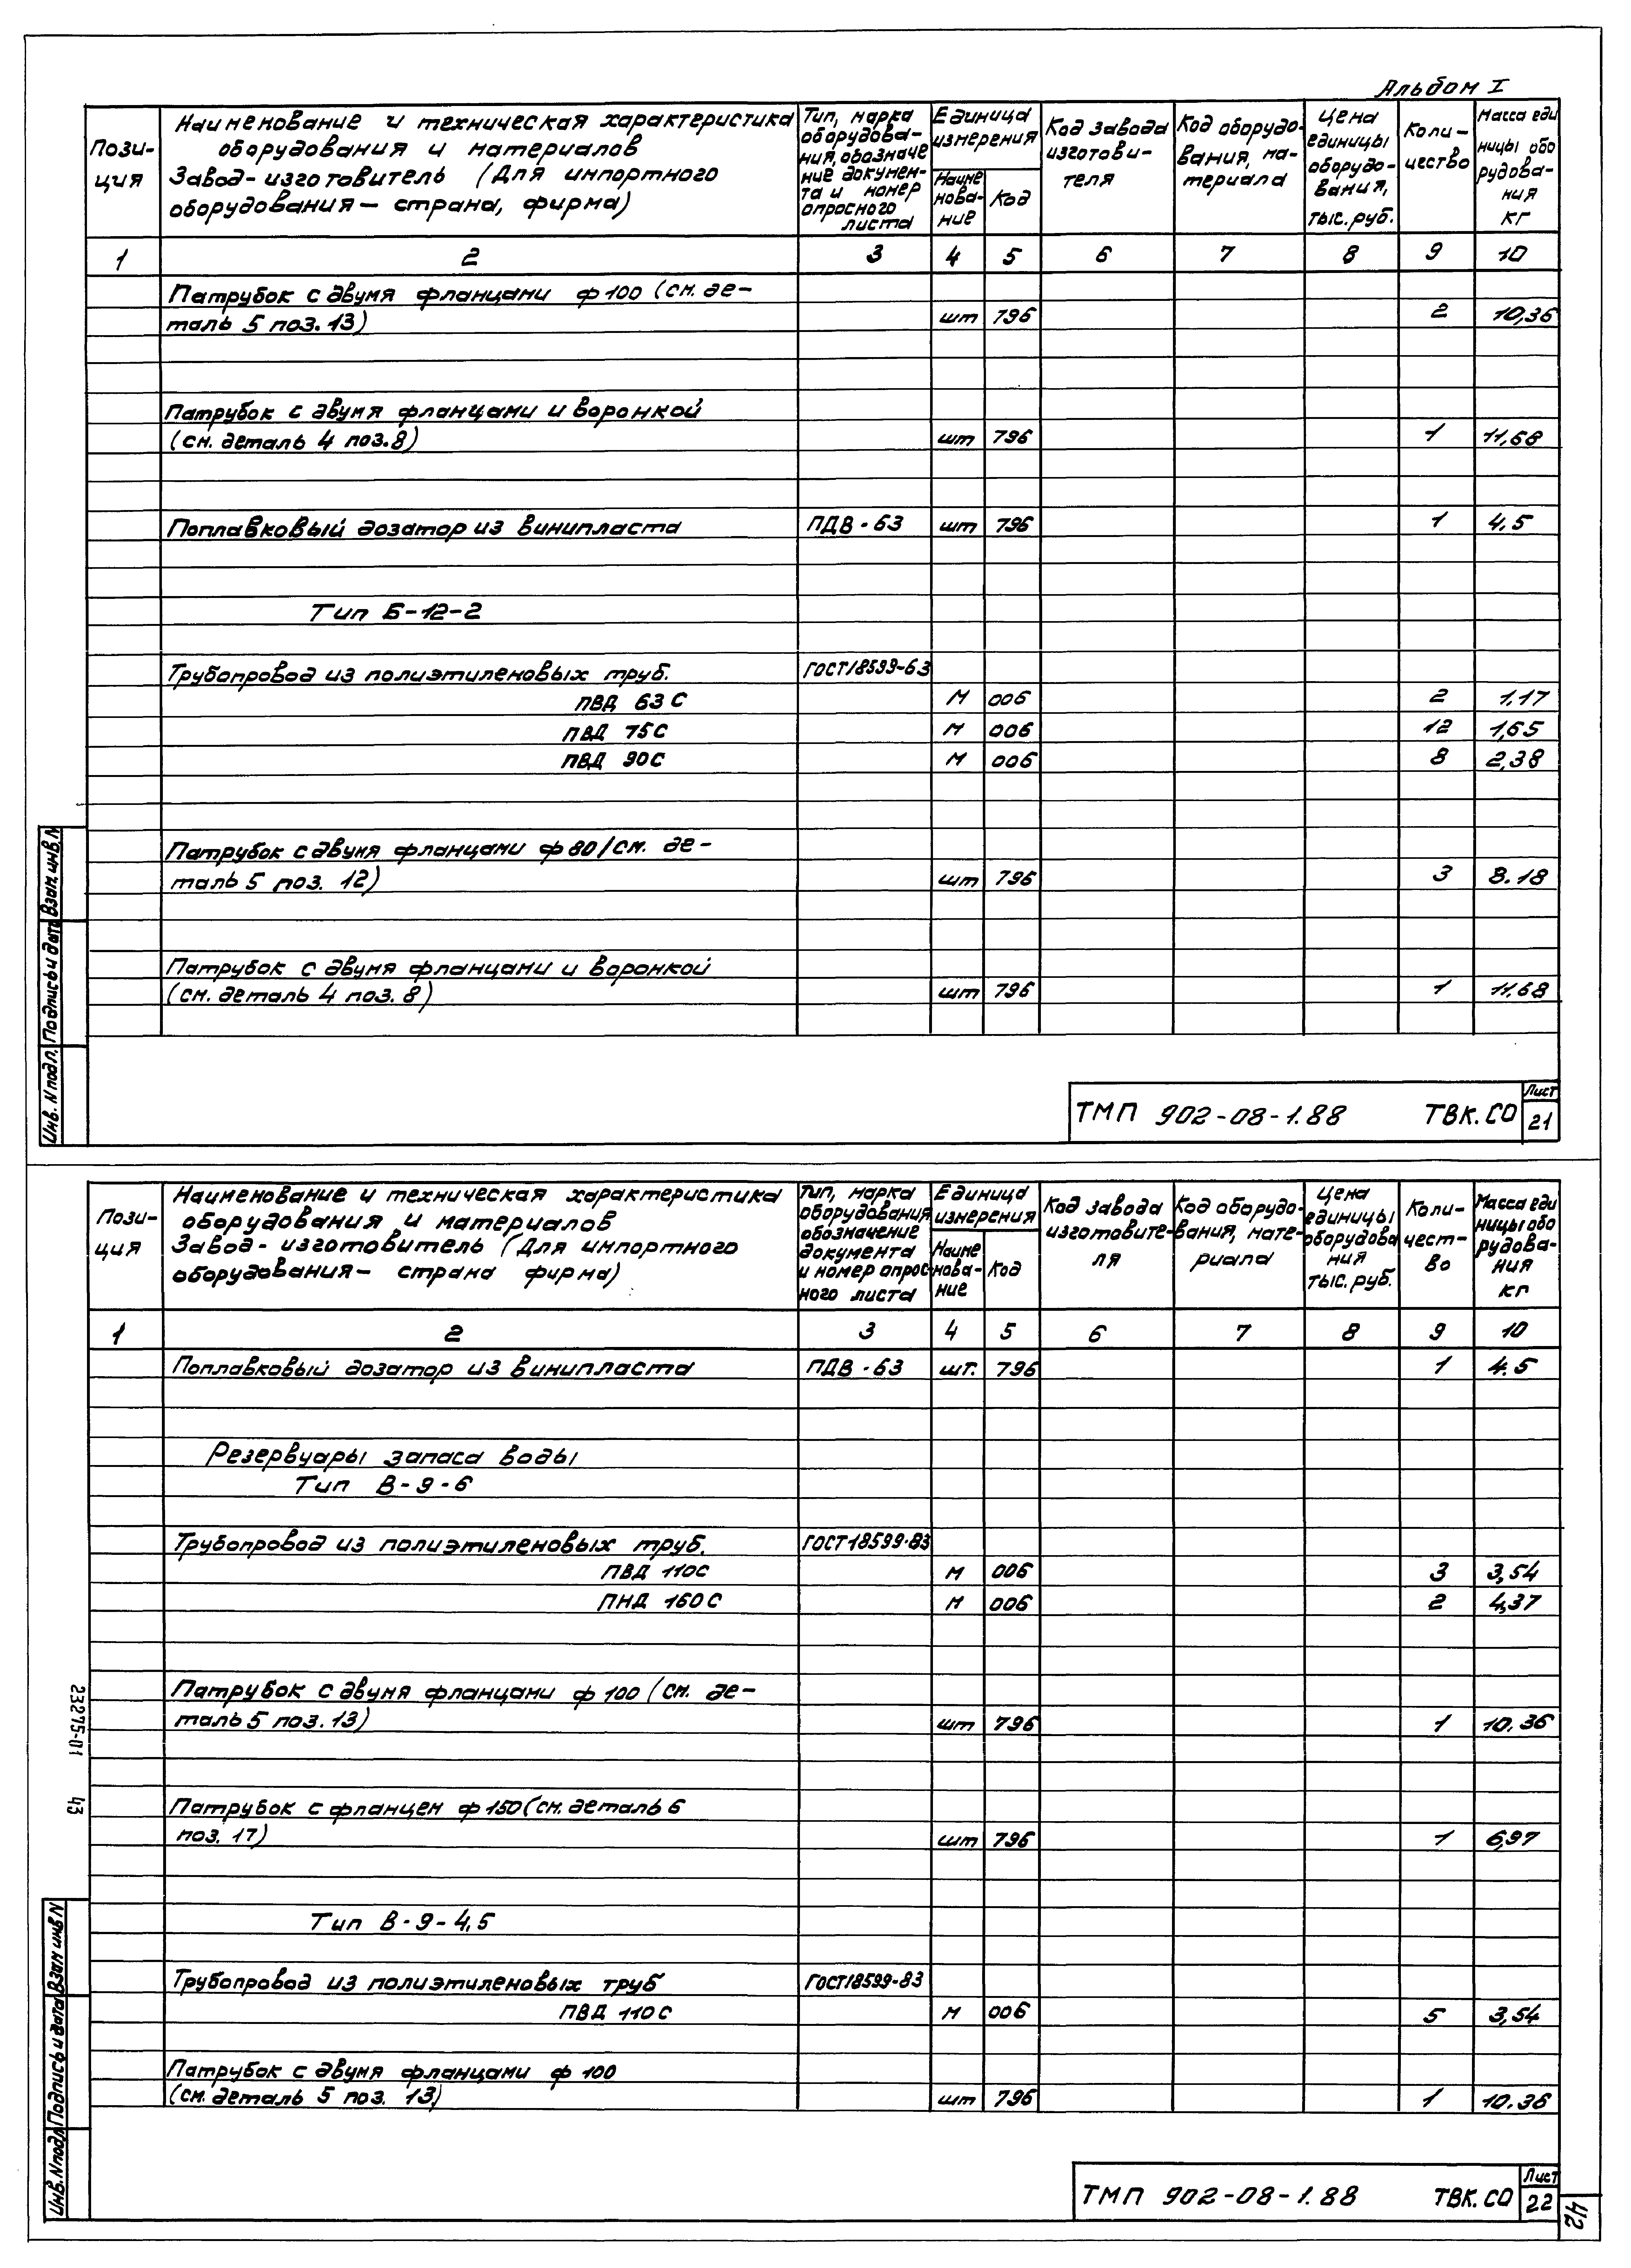 Альбом I
Пози-
ция
Наименование и техническая характеристика
оборудования и материалов
Завод-изготовитель (Для импортного
оборудования – страна, фирма)
Тип, марка
оборудова-
ния, обозначе
ние докумен-
та и номер
опросного
листа
Единица
измерения
Наиме
нова-
ние
Код
Код завода
изготови-
теля
Код оборудо-
вания, ма-
териала
Цена
единицы
оборудо-
вания,
тыс. руб.
Коли-
чество
Масса еди
ницы обо
рудова-
ния
кг
1 2 3 4 5 6 7 8 9 10
Патрубок с двумя фланцами ф 100 (см. де-
таль 5 поз. 13) шт 796 2 10,36
Патрубок с двумя фланцами и воронкой
(см. деталь 4 поз. 8) шт 796 1 11,68
Поплавковый дозатор из винипласта ПДВ - 63 шт 796 1 4,5
Тип Б-12-2
Трубопровод из полиэтиленовых труб. ГОСТ18599-63
ПВД 63 С М 006 2 1,17
ПВД 75С М 006 12 1,65
ПВД 90С М 006 8 2,38
Патрубок с двумя фланцами ф 80 /см. де-
таль 5 поз. 12) шт 796 3 8.18
Патрубок с двумя фланцами и воронкой
(см. деталь 4 поз. 8) шт 796 1 11.68
Взам. инв. N
Подпись и дата
Инв. N подл.
ТМП 902-08-1.88 ТВК.СО
Лист
21
Пози-
ция
Наименование и техническая характеристика
оборудования и материалов
Завод-изготовитель (Для импортного
оборудования – страна фирма)
Тип, марка
оборудования,
обозначение
документа
и номер опрос-
ного листа
Единица
измерения
Наиме
нова-
ние
Код
Код завода
изготовите-
ля
Код оборудо-
вания, мате-
риала
Цена
единицы
оборудова
ния
тыс. руб.
Коли-
чест-
во
Масса еди
ницы обо
рудова-
ния
кг
1 2 3 4 5 6 7 8 9 10
Поплавковый дозатор из винипласта ПДВ - 63 шт. 796 1 4.5
Резервуары запаса воды
Тип В-9-6
Трубопровод из полиэтиленовых труб. ГОСТ18599-83
ПВД 110С М 006 3 3,54
ПНД 160 С М 006 2 4,37
Патрубок с двумя фланцами ф 100 (см. де-
таль 5 поз. 13) шт 796 1 10.36
Патрубок с фланцем ф 150 (см. деталь 6
поз. 17) шт 796 1 6,97
Тип В-9-4,5
Трубопровод из полиэтиленовых труб ГОСТ18599-83
ПВД 110 С М 006 5 3,54
Патрубок с двумя фланцами ф 100
(см. деталь 5 поз. 13) шт 796 1 10.36
23275-01 43
Взам инв N
Подпись и дата
Инв. N подл
ТМП 902-08-1.88 ТВК.СО
Лист
22
42